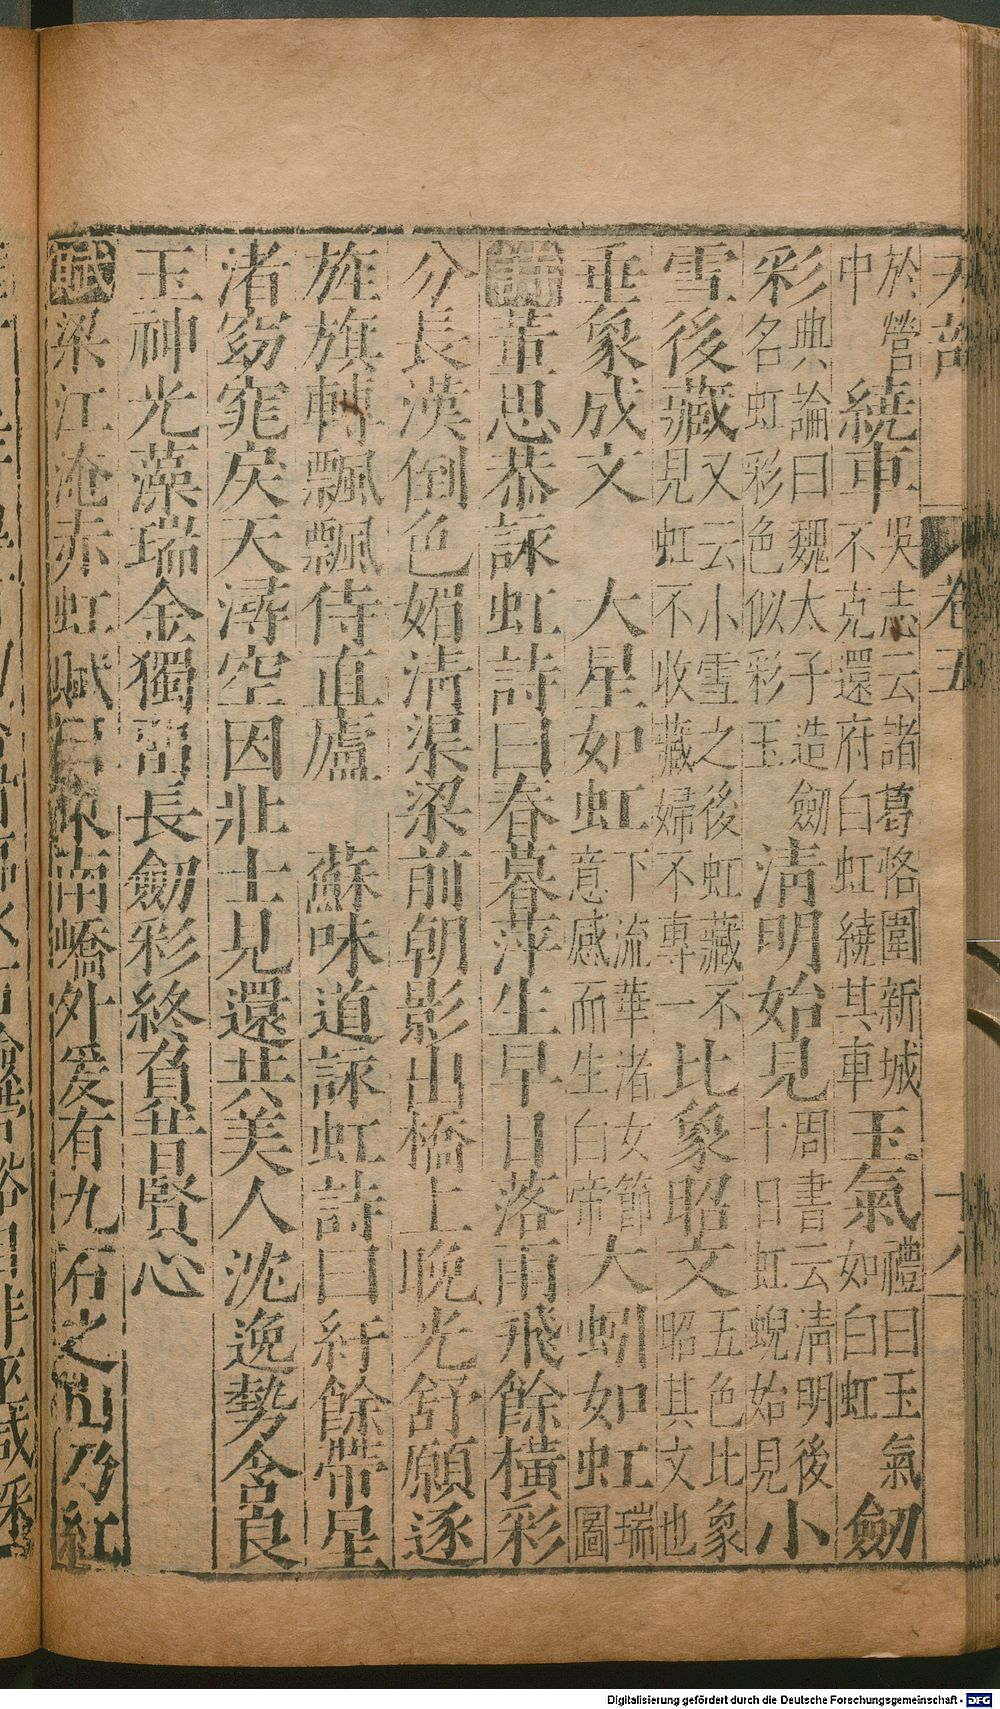 天部 卷五 十八
於營中 繞車 吳志云諸葛恪圍新城不克還府白虹繞其車 玉氣 禮曰玉氣如白虹 劒
彩 典論曰魏太子造劒名虹彩色似彩玉 清明始見 周書云清明後十日虹蜺始見 小
雪後藏 又云小雪之後虹藏不見虹不收藏婦不專一 比象昭文 五色比象昭其文也
垂象成文 大星如虹 下流華渚女節意感而生白帝 大蚓如虹 瑞圖
詩 董思恭詠虹詩曰春暮萍生早日落雨飛餘橫彩
分長漢倒色媚清渠梁前朝影出橋上晚光舒願逐
旌旗轉飄飄侍直廬 蘇味道詠虹詩曰紆餘帶星
渚窈窕戾天潯空因壯士見還共美人沈逸勢含良
玉神光藻瑞金獨留長劒彩終負昔賢心
賦 梁江淹赤虹賦曰東南嶠外爰有九石之山乃紅
Digitalisierung gefördert durch die Deutsche Forschungsgemeinschaft - DFG